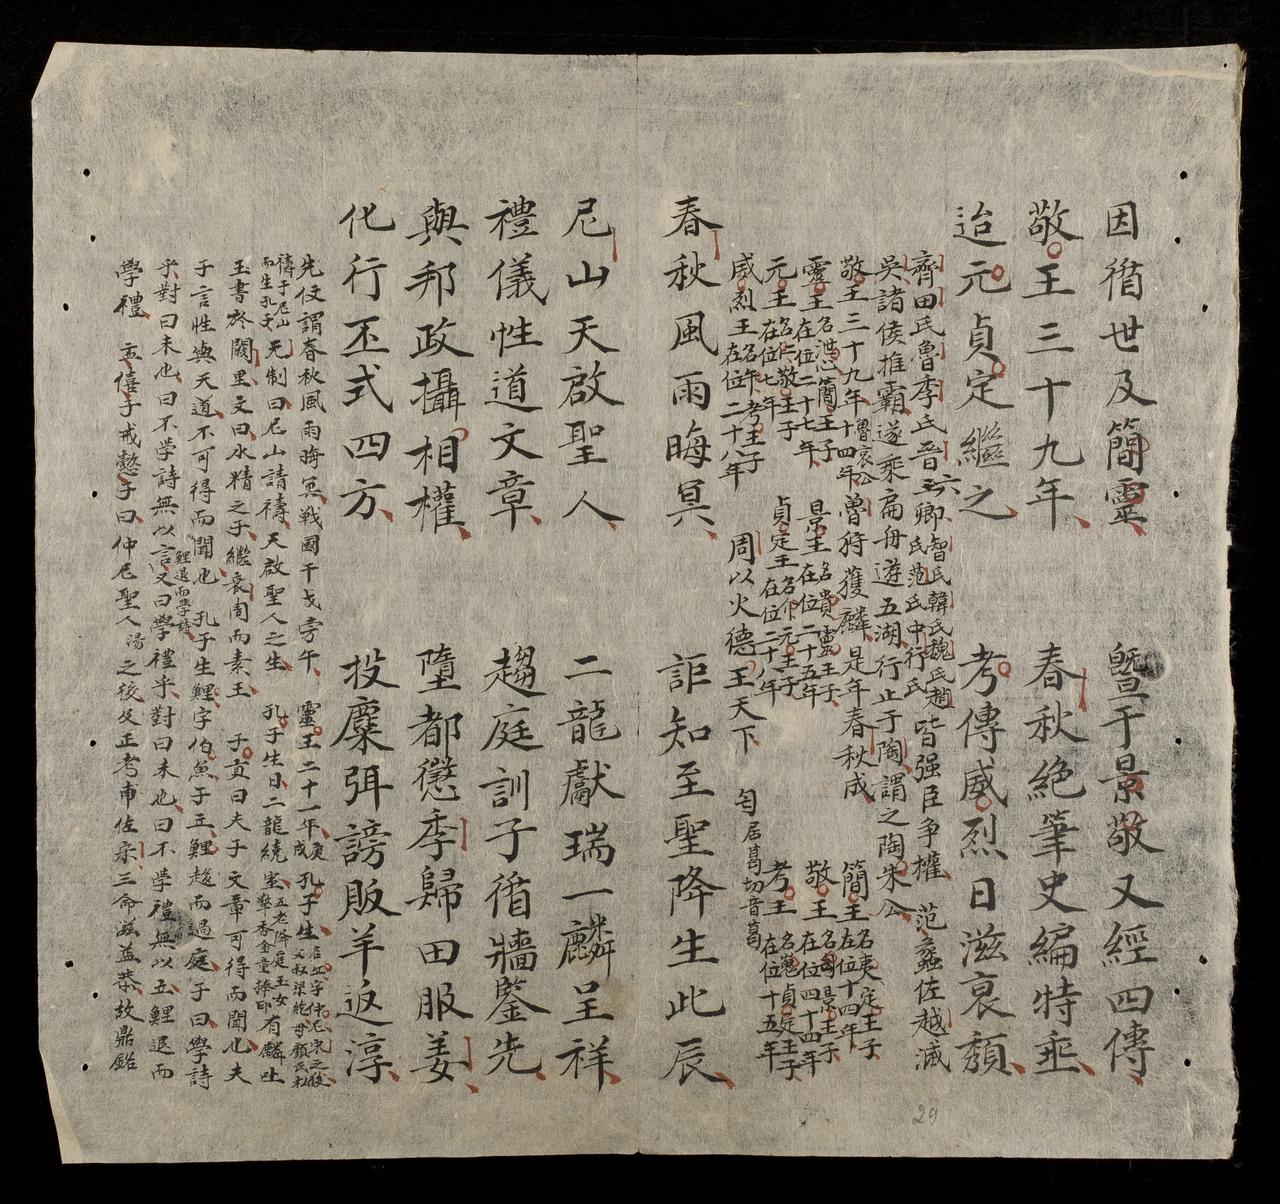 因循世及簡靈 曁于景敬又經四傳
敬王三十九年 春秋絶筆史編特垂
迨元貞定繼之 考傳威烈日滋衰頹
齊田氏魯季氏晉六卿智氏韓氏魏氏趙氏范氏中行氏皆强臣争權 范蠡佐越滅
吳諸侯推霸遂乘扁舟遊五湖行止于陶謂之陶朱公
敬王三十九年魯哀公十四年魯狩獲麟是年春秋成 簡王名夷定王子在位十四年
靈王名洩心簡王子在位二十七年 景王名貴靈王子在位二十五年 敬王名匄景王子在位四十四年
元王名仁敬王子在位七年 貞定王名介元王子在位二十八年 考王名嵬貞定王子在位十五年
威烈王名午考王子在位二十八年 周以火德王天下 匄居曷切音葛
春秋風雨晦冥 詎知至聖降生此辰
尼山天啟聖人 二龍獻瑞一麟呈祥
禮儀性道文章 趨庭訓子循牆鑒先
與邦政攝相權 墮都愆季歸田服姜
化行丕式四方 投麋弭謗販羊返淳
先伩謂春秋風雨晦冥戰國干戈旁午 靈王二十一年庚戌孔子生名丘字仲尼宋之後父叔梁紇母顏氏私
禱于尼山而生孔子 元制曰尼山請禱天啟聖人之生 孔子生日二龍繞室五老降庭玉女擎香金童捧印有麟吐
玉書於闕里文曰水精之子繼衰周而素王 子貢曰夫子文章可得而聞也夫
子言性與天道不可得而聞也 孔子生鯉字伯魚子立鯉趨而過庭子曰學詩
乎對曰未也曰不學詩無以言鯉退而學詩又曰學禮乎對曰未也曰不學禮無以立鯉退而
學禮 孟僖子戒懿子曰仲尼聖人湯之後及正考甫佐宗三命滋益恭故鼎銘
29